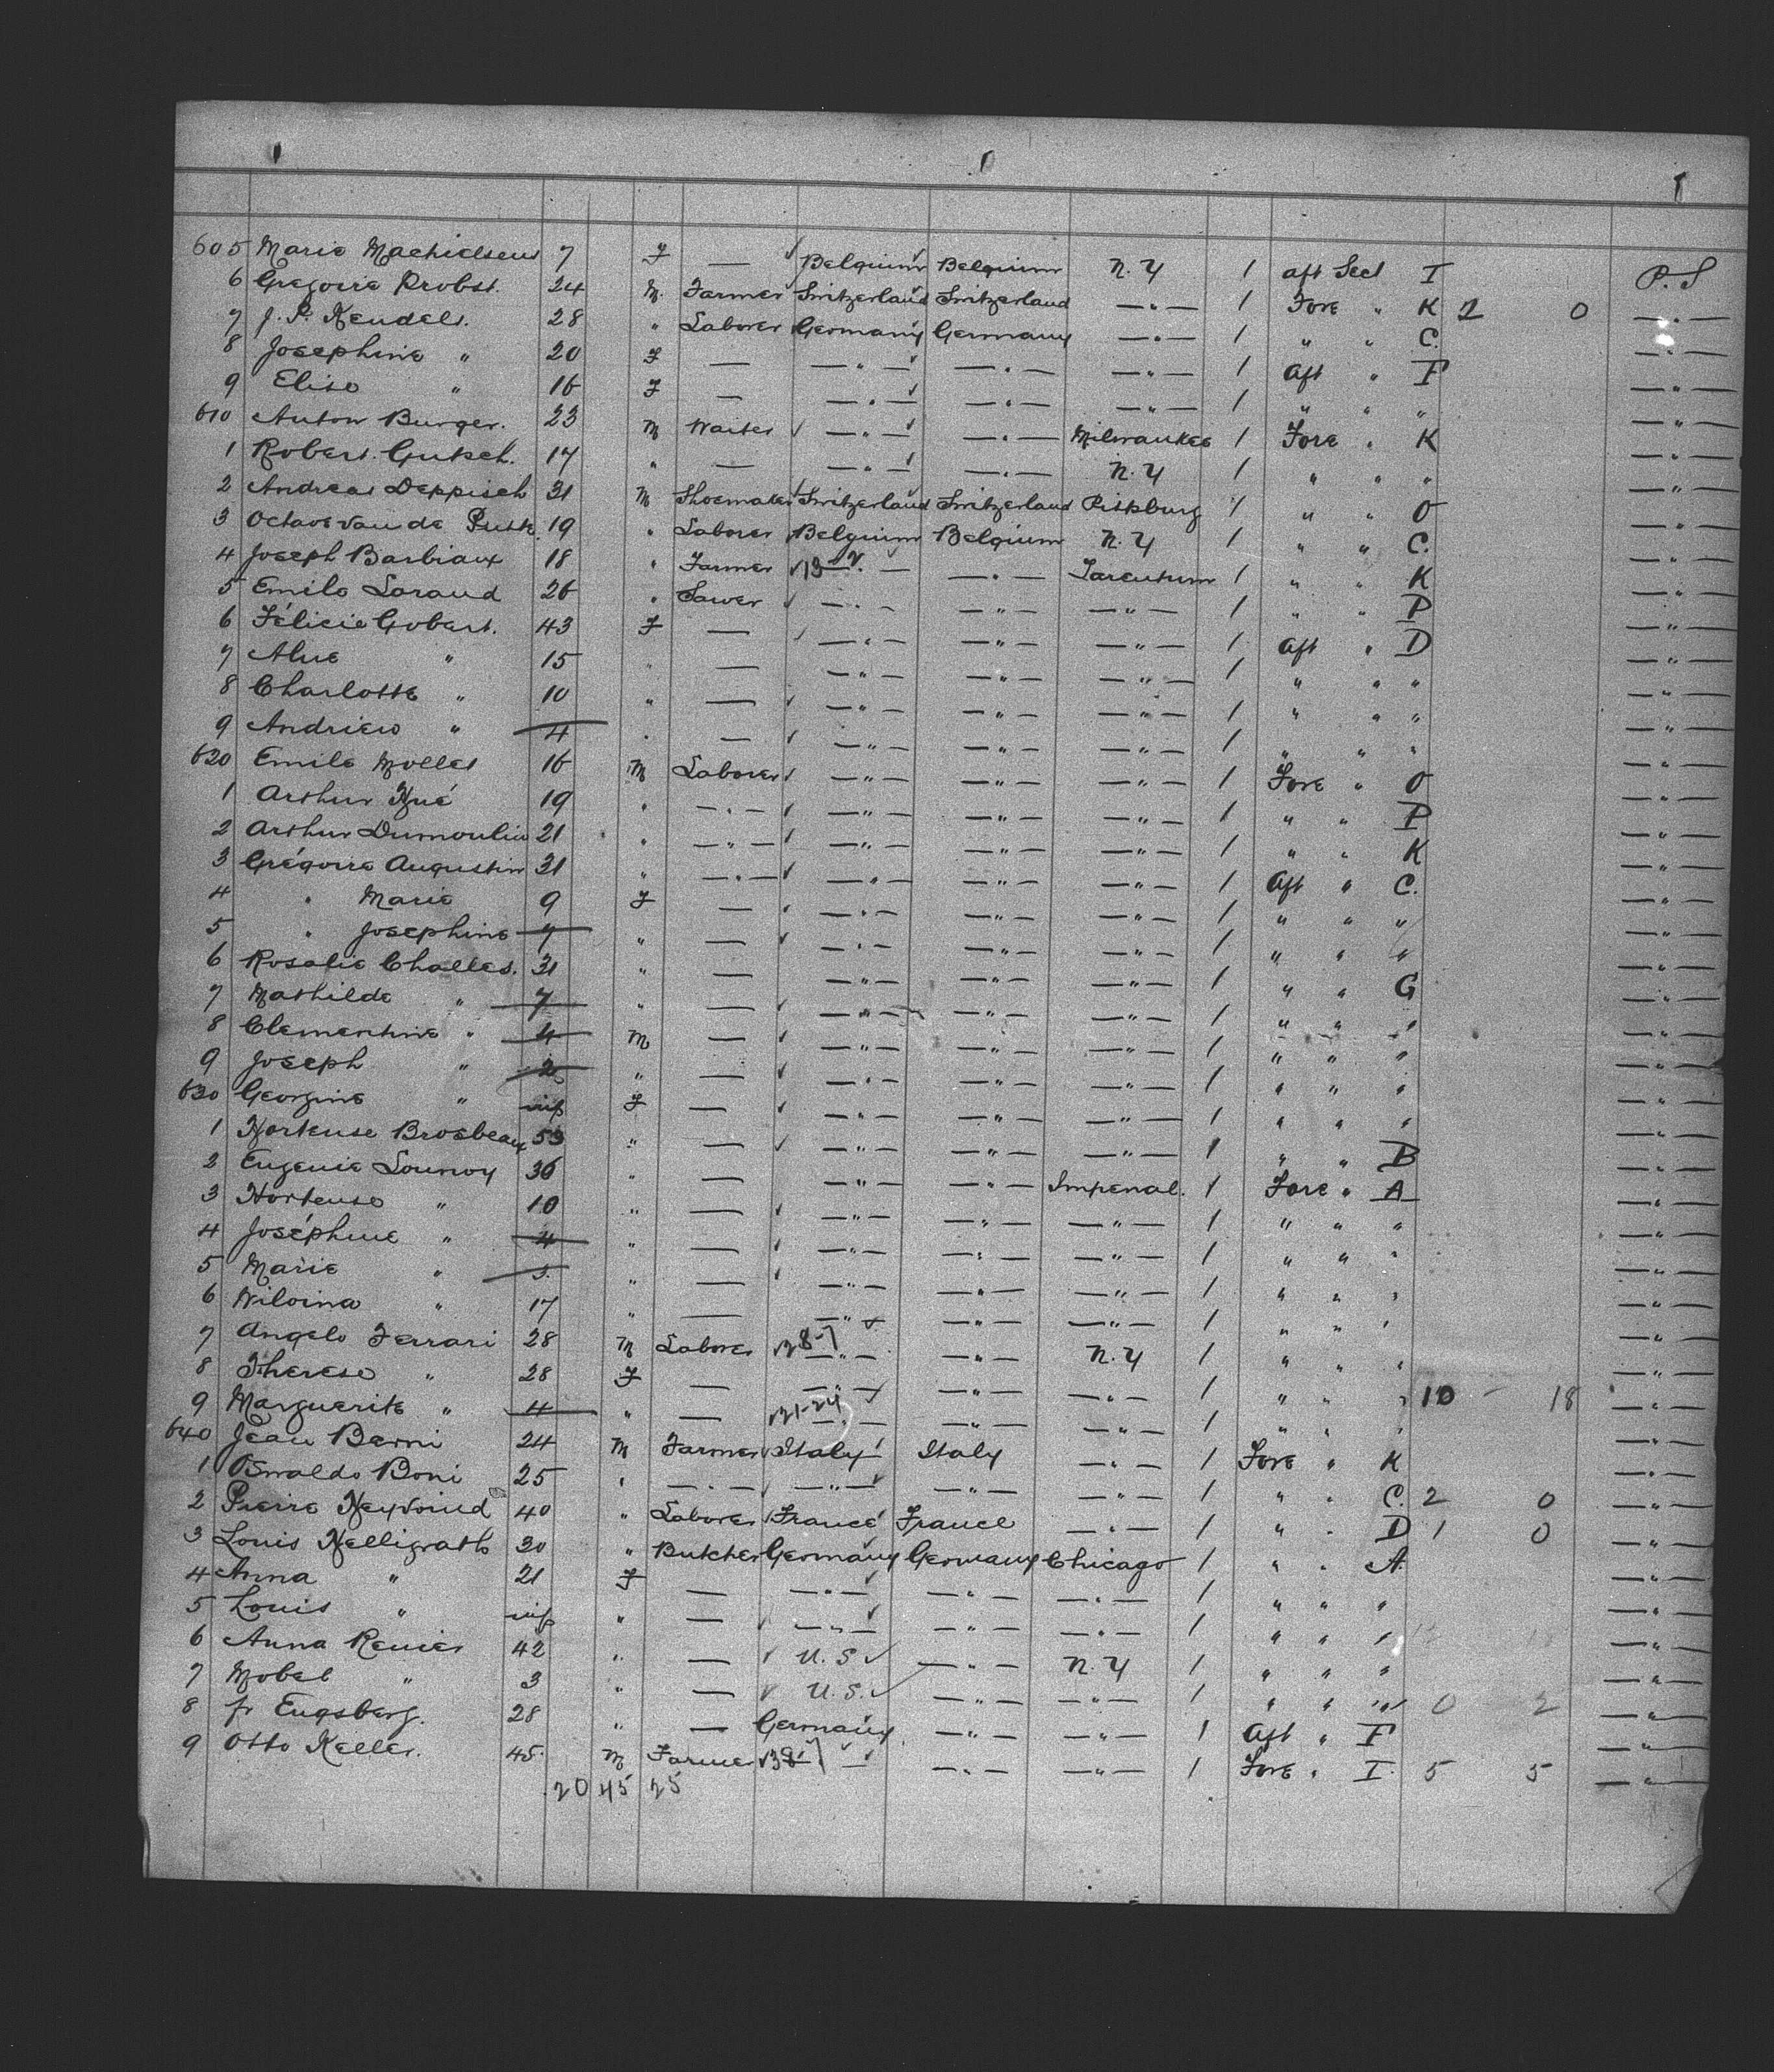 605 Marie Machielsens 7 F — Belgium Belgium N.Y 1 aft Sect I P.S
6 Gregoire Probst. 24 M. Farmer Switzerland Switzerland —"— 1 Fore " K 2 0 —"—
7 J. P. Kendels. 28 " Laborer Germany Germany —"— 1 " " C. —"—
8 Josephine " 20 F — —"— —"— —"— 1 Aft " F —"—
9 Elise " 16 F — —"— —"— —"— 1 " " " —"—
610 Anton Burger. 23 M Waiter —"— —"— Milwaukee 1 Fore " K —"—
1 Robert Gutsch. 17 " — —"— —"— N.Y 1 " " " —"—
2 Andreas Deppisch 31 M Shoemaker Switzerland Switzerland Pittsburg 1 " " O —"—
3 Octave van de Putte 19 " Laborer Belgium Belgium N.Y 1 " " C. —"—
4 Joseph Barbiaux 18 " Farmer —"— —"— Tarentum 1 " " K —"—
5 Emile Loraud 26 " Sawer —"— —"— —"— 1 " " P —"—
6 Félicie Gobert. 43 F — —"— —"— —"— 1 Aft " D —"—
7 Aline " 15 " — —"— —"— —"— 1 " " " —"—
8 Charlotte " 10 " — —"— —"— —"— 1 " " " —"—
9 Andriew " 4 " — —"— —"— —"— 1 " " " —"—
620 Emile Mollet 16 M Laborer —"— —"— —"— 1 Fore " O —"—
1 Arthur Hué 19 " —"— —"— —"— —"— 1 " " P —"—
2 Arthur Dumoulin 21 " —"— —"— —"— —"— 1 " " K —"—
3 Grégoire Augustin 31 " —"— —"— —"— —"— 1 Aft " C. —"—
4 " Marie 9 F — —"— —"— —"— 1 " " " —"—
5 " Josephine 7 " — —"— —"— —"— 1 " " " —"—
6 Rosalie Challes. 31 " — —"— —"— —"— 1 " " G —"—
7 Mathilde " 7 " — —"— —"— —"— 1 " " " —"—
8 Clementine " 4 M — —"— —"— —"— 1 " " " —"—
9 Joseph " 2 " — —"— —"— —"— 1 " " " —"—
630 Georgine " inf F — —"— —"— —"— 1 " " " —"—
1 Hortense Brosbeaux 53 " — —"— —"— —"— 1 " " B —"—
2 Eugenie Lounoy 36 " — —"— —"— Imperial. 1 Fore " A —"—
3 Hortense " 10 " — —"— —"— —"— 1 " " " —"—
4 Joséphine " 4 " — —"— —"— —"— 1 " " " —"—
5 Marie " 3. " — —"— —"— —"— 1 " " " —"—
6 Wilvina " 17 " — —"— —"— —"— 1 " " " —"—
7 Angelo Ferrari 28 M Laborer —"— —"— N.Y 1 " " " —"—
8 Therese " 28 F — —"— —"— —"— 1 " " " 10 - 18 —"—
9 Marguerite " 4 " — —"— —"— —"— 1 " " " —"—
640 Jean Berni 24 M Farmer Italy Italy —"— 1 Fore " K —"—
1 Oswaldo Boni 25 " —"— —"— —"— —"— 1 " " C. 2 0 —"—
2 Pierre Neyvoind 40 " Laborer France France —"— 1 " " D 1 0 —"—
3 Louis Helligrath 30 " Butcher Germany Germany Chicago 1 " " A. —"—
4 Anna " 21 F — —"— —"— —"— 1 " " " —"—
5 Louis " inf " — —"— —"— —"— 1 " " " —"—
6 Anna Renier 42 " — U.S —"— N.Y 1 " " " —"—
7 Mobel " 3 " — U.S. —"— —"— 1 " " " 0 2 —"—
8 fr Engsberg. 28 " — Germany —"— —"— 1 Aft " F —"—
9 Otto Keller. 45. M Farmer —"— —"— —"— 1 Fore " I. 5 5 —"—
20 45 25